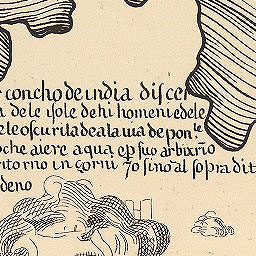 concho de india discer
dele isole dehi homeni edele
ele oscurita de ala uia de ponte
oche auere aqua et suo arbixrio
ritorno in zorni 70 sino al sopra dit
deno